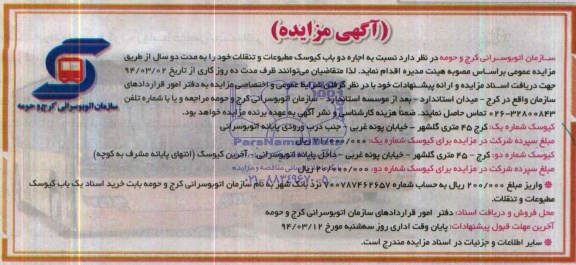 (آگهی مزایده)
سازمان اتوبوسرانی کرج و حومه
سازمان اتوبوسرانی کرج و حومه در نظر دارد نسبت به اجاره دو باب کیوسک مطبوعات و تنقلات خود را به مدت دو سال از طریق
مزایده عمومی براساس مصوبه هیئت مدیره اقدام نماید. لذا متقاضیان می‌توانند ظرف مدت ده روز کاری از تاریخ ۹۴/۰۳/۰۲
جهت دریافت اسناد مزایده و ارائه پیشنهادات خود با در نظر گرفتن شرایط عمومی و اختصاصی مزایده به دفتر امور قراردادهای
سازمان واقع در کرج - میدان استاندارد - بعد از موسسه استاندارد - سازمان اتوبوسرانی کرج و حومه مراجعه و یا با شماره تلفن
۰۲۶-۳۲۸۰۰۸۴۳ تماس حاصل نمایند. ضمناً هزینه کارشناسی و نشر آگهی به عهده برنده مزایده خواهد بود.
کیوسک شماره یک: کرج ۴۵ متری گلشهر - خیابان پونه غربی - جنب درب ورودی پایانه اتوبوسرانی
مبلغ سپرده شرکت در مزایده برای کیوسک شماره یک: ریال
کیوسک شماره دو: کرج - ۴۵ متری گلشهر - خیابان پونه غربی - داخل پایانه اتوبوسرانی - آخرین کیوسک (انتهای پایانه مشرف به کوچه)
مبلغ سپرده شرکت در مزایده برای کیوسک شماره دو: ۲۰/۰۰۰/۰۰۰ ریال
* واریز مبلغ ۲۰۰/۰۰۰ ریال به حساب شماره ۷۰۰۷۸۷۴۶۲۶۵۷ نزد بانک شهر به نام سازمان اتوبوسرانی کرج و حومه بابت خرید اسناد یک باب کیوسک
مطبوعات و تنقلات.
محل فروش و دریافت اسناد: دفتر امور قراردادهای سازمان اتوبوسرانی کرج و حومه
آخرین مهلت قبول پیشنهادات: پایان وقت اداری روز سه‌شنبه مورخ ۹۴/۰۳/۱۲
* سایر اطلاعات و جزئیات در اسناد مزایده مندرج است.